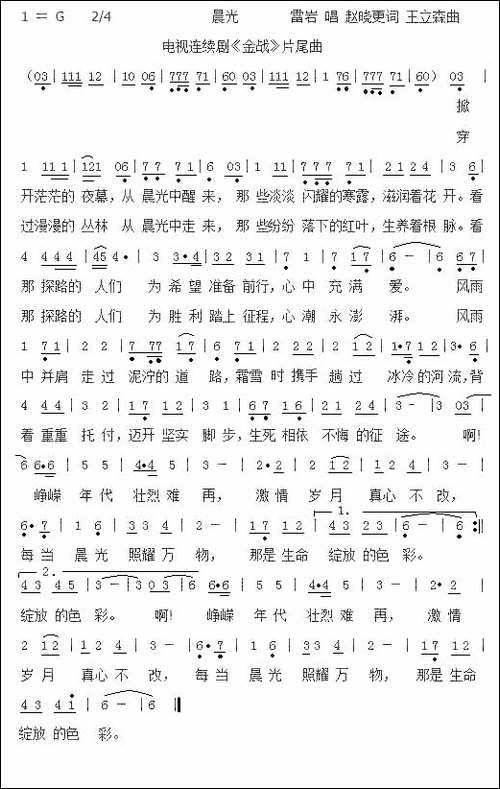 1 = G 2/4 晨光 雷岩 唱 赵晓更词 王立森曲
电视连续剧《金战》片尾曲
(03 | 111 12 | 10 06 | 777 71 | 60 03 | 111 12 | 1 76 | 777 71 | 60) 03 |
掀
穿
1 11 1 | 121 06 | 7 7 7 1 | 6 03 | 1 11 | 777 71 | 2124 | 3 6 |
开茫茫的 夜幕,从 晨光中醒 来,那 些淡淡 闪耀的寒露,滋润着花 开。看
过漫漫的 丛林 从 晨光中走 来,那 些纷纷 落下的红叶,生养着根 脉。看
4 444 | 45 4· | 3 3·4 | 32 31 | 7 1 | 7 12 | 6 - | 6 67 |
那 探路的 人们 为 希望 准备 前行,心中 充 满 爱。 风雨
那 探路的 人们 为 胜利 踏上 征程,心潮 永 澎 湃。 风雨
1 71 | 2 2 | 7 77 17 | 6 71 | 2 22 | 2 12 | 1·7 12 | 3· 6 |
中 并肩 走过 泥泞的 道 路,霜雪 时 携手 趟过 冰冷的河 流,背
4 44 | 3 2 | 17 12 | 3 1 | 67 16 | 21 24 | 3 - | 3 03 |
看 重重 托付,迈开 坚实 脚步,生死 相依 不悔的征 途。 啊!
6 6·6 | 5 5 | 4·4 5 | 3 - | 2·2 | 2 12 | 12 4 | 3 - |
峥嵘 年代 壮烈 难 再, 激情 岁 月 真心 不 改,
6·7 | 1 6 | 33 4 | 2 - | 2 | 17 12 | 43 23 | 6 - | 6 :||
每当 晨光 照耀 万 物, 那是 生命 绽放 的色 彩。
1.
2.
43 45 | 3 - | 3 03 6 | 6·6 | 5 5 | 4·4 5 | 3 - | 2· 2 |
绽放 的色 彩。 啊! 峥嵘 年代 壮烈 难 再, 激 情
2 12 | 12 4 | 3 - | 6·7 | 1 6 | 33 4 | 2 - | 2 | 17 12 |
岁 月 真心 不 改, 每当 晨光 照耀 万 物, 那是 生命
43 41 | 6 - | 6 ||
绽放 的色 彩。